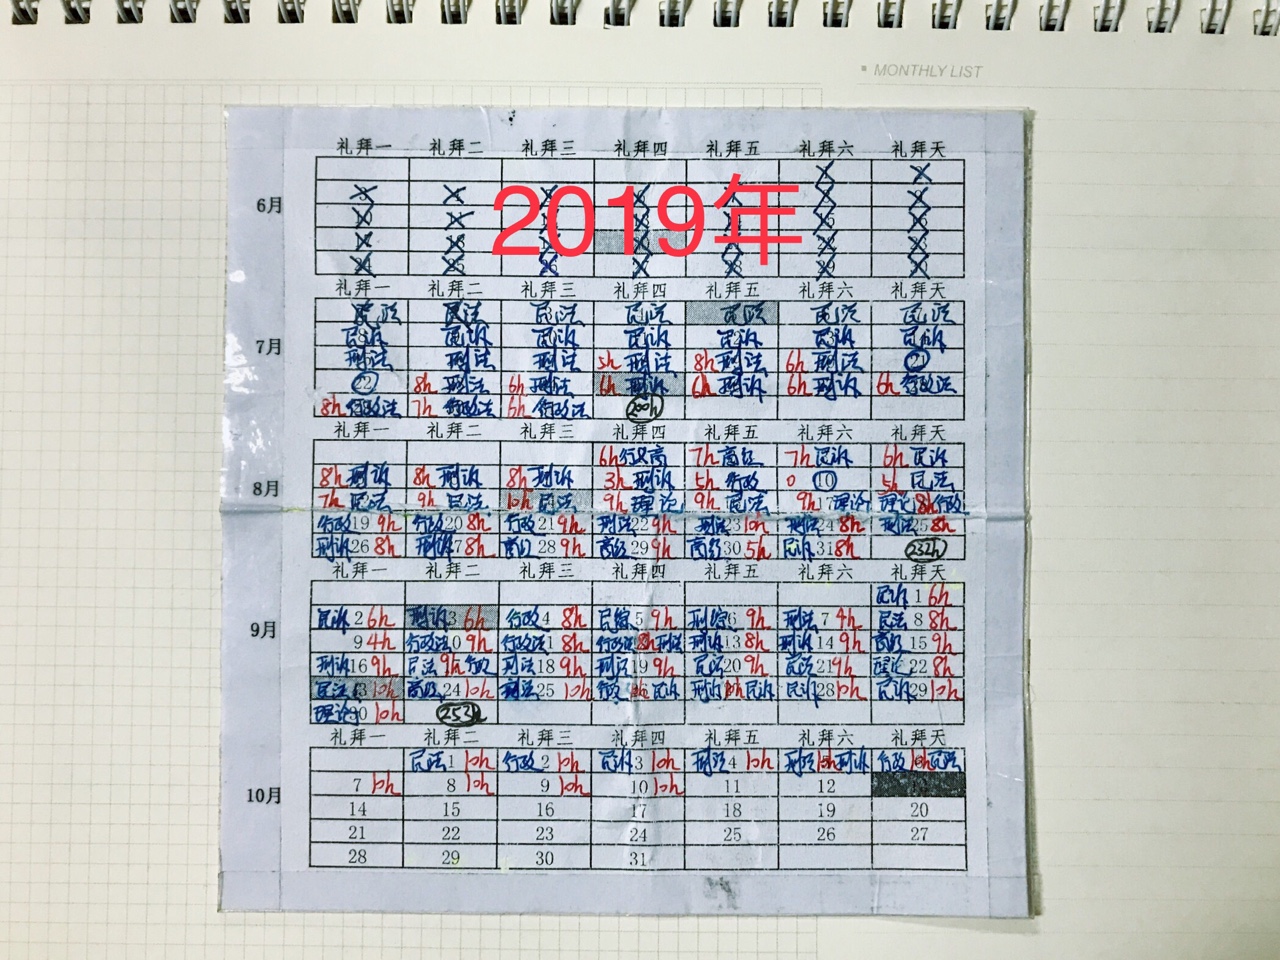 MONTHLY LIST
礼拜一 礼拜二 礼拜三 礼拜四 礼拜五 礼拜六 礼拜天
2019年
6月
礼拜一 礼拜二 礼拜三 礼拜四 礼拜五 礼拜六 礼拜天
民法 民法 民法 民法 民法 民法 民法
民诉 民诉 民诉 民诉 民诉 民诉 民诉
7月
刑法 刑法 刑法 5h 刑法 8h 刑法 6h 刑法 21
22 8h 刑法 6h 刑法 6h 刑诉 6h 刑诉 6h 刑诉 6h 行政法
8h 行政法 7h 行政法 5h 行政法 200h
礼拜一 礼拜二 礼拜三 礼拜四 礼拜五 礼拜六 礼拜天
6h 7h 商经 7h 民诉 6h 民诉
8h 刑诉 8h 刑诉 8h 刑诉 3h 刑诉 5h 行政 0 10 5h 民法
8月
7h 民法 9h 民法 10h 民法 9h 理论 9h 民法 9h 17 理论 理论 8h 行政
行政 19 9h 行政 20 8h 行政 21 9h 刑法 22 9h 刑法 23 10h 刑法 24 8h 刑法 25 8h
刑诉 26 8h 刑诉 27 8h 商经 28 9h 商经 29 9h 商经 30 5h 民诉 31 8h 232h
礼拜一 礼拜二 礼拜三 礼拜四 礼拜五 礼拜六 礼拜天
民诉 1 6h
民诉 2 6h 刑诉 3 6h 行政 4 8h 民综 5 9h 刑综 6 9h 刑法 7 4h 民法 8 8h
9月
9 4h 行政法 10 9h 行政法 11 8h 行政法 8h 刑法 刑诉 13 8h 刑诉 14 9h 商经 15 9h
刑诉 16 9h 民法 9h 行政 刑法 18 9h 刑法 19 9h 民法 20 9h 民法 21 9h 理论 22 8h
民法 23 10h 商经 24 10h 刑法 25 10h 民诉 刑诉 民诉 民诉 28 10h 民诉 29 10h
理论 30 10h 253h
礼拜一 礼拜二 礼拜三 礼拜四 礼拜五 礼拜六 礼拜天
民法 1 10h 行政 2 10h 民诉 3 10h 刑法 4 10h 刑法 10h 刑诉 行政 10h 民法
7 10h 8 10h 9 10h 10 10h 11 12
10月
14 15 16 17 18 19 20
21 22 23 24 25 26 27
28 29 30 31